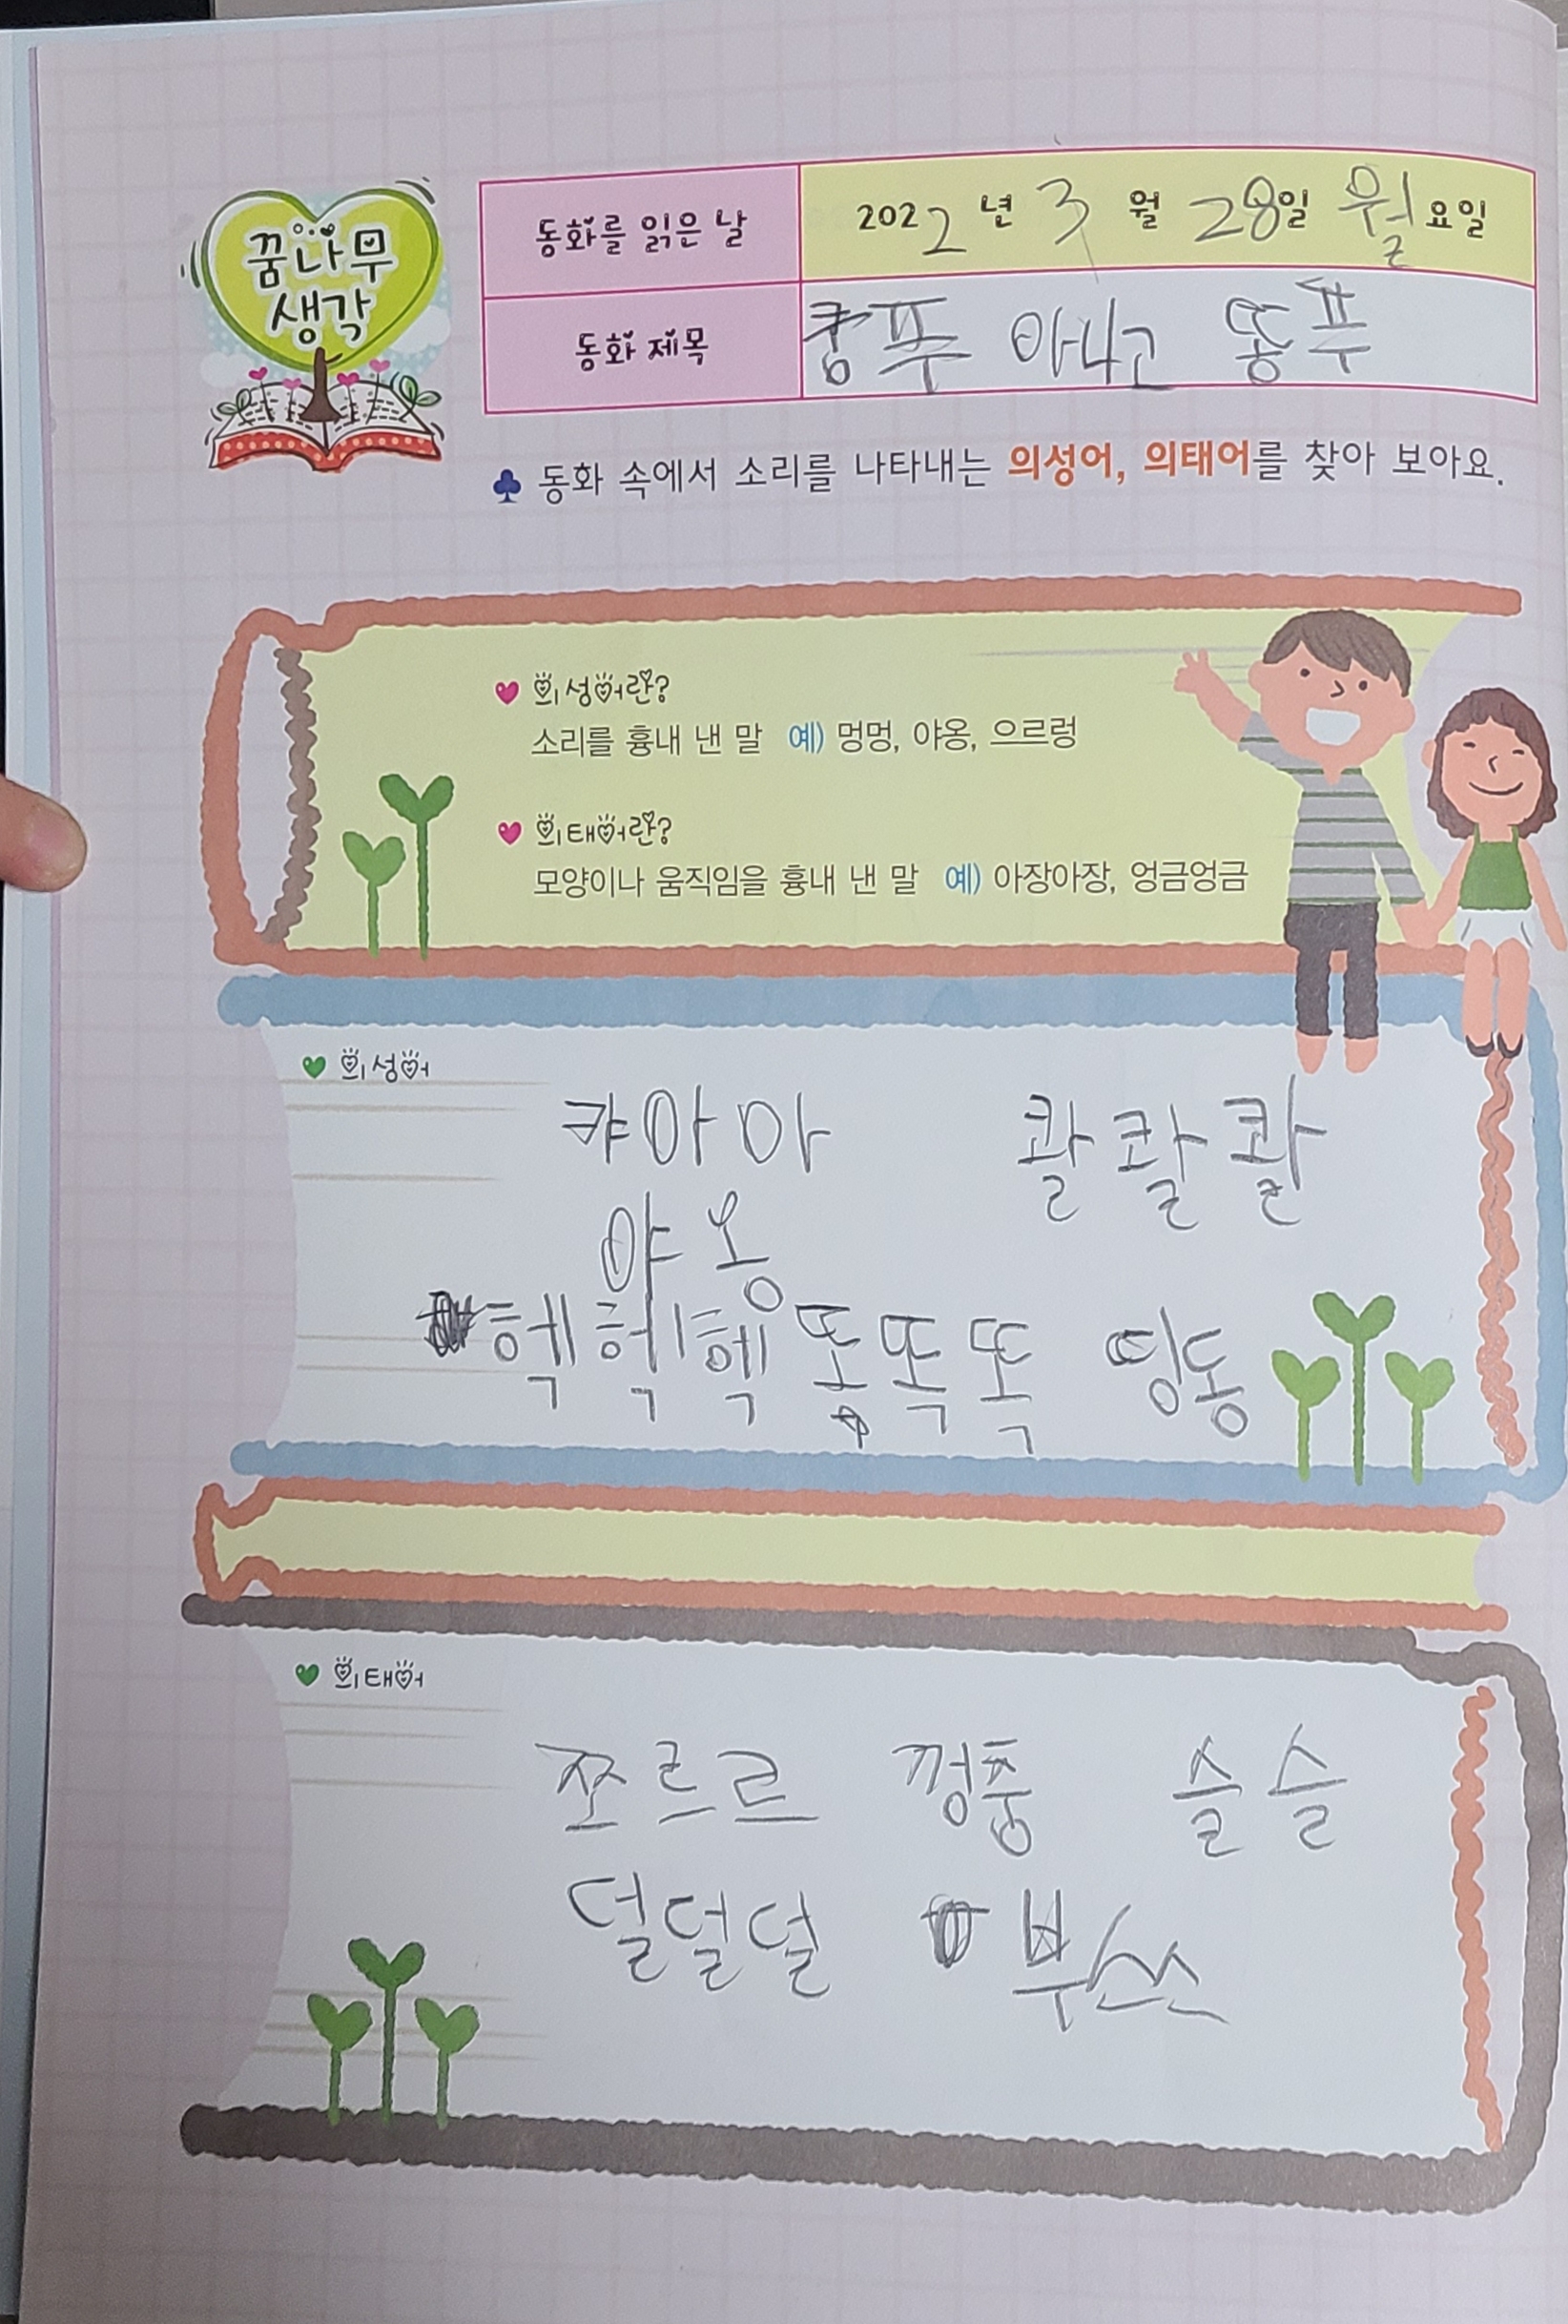 꿈나무
생각
동화를 읽은 날
2022년 3월 28일 월요일
동화 제목
쿵푸 아니고 똥푸
동화 속에서 소리를 나타내는 의성어, 의태어를 찾아 보아요.
의성어란?
소리를 흉내 낸 말 예) 멍멍, 야옹, 으르렁
의태어란?
모양이나 움직임을 흉내 낸 말 예) 아장아장, 엉금엉금
의성어
캬아아 콸콸콸
야옹
헥헥헥 똑똑똑 띵동
의태어
쪼르르 껑충 슬슬
덜덜덜 부스스